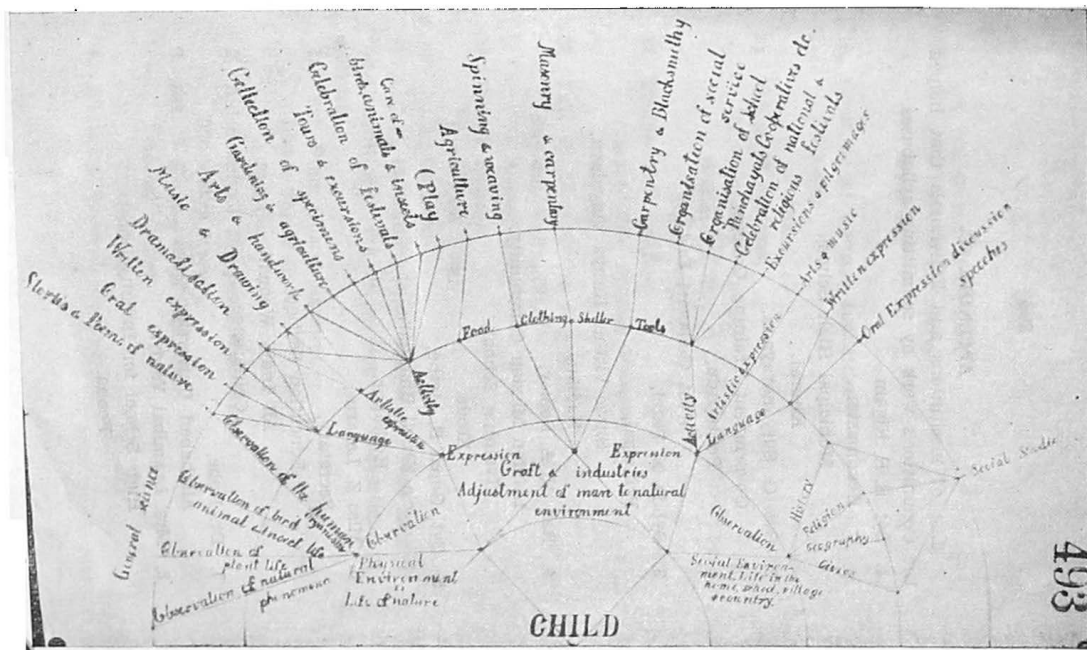 Stories & Poems of nature
Oral expression
Written expression
Dramatisation
Music & Drawing
Arts & handwork
Gardening & agriculture
Collection of specimens
Tours & excursions
Celebration of festivals
Care of
birds, animals & insects
(Play
Agriculture
Spinning & weaving
Masonry & carpentry
Carpentry & Blacksmithy
Organisation of social
service
Organisation of school
Panchayats Cooperatives etc.
Celebration of national &
religious festivals
Excursions & pilgrimages
Arts & music
Written expression
Oral Expression discussion
speeches
Food
Clothing
Shelter
Tools
Activity
Artistic expression
Language
Expression
Craft & industries
Adjustment of man to natural
environment
Expression
Activity
Artistic expression
Language
General science
Observation of the human
organism
Observation of bird
animal & insect life
Observation of
plant life
Observation of natural
phenomena
Observation
Physical
Environment
Life of nature
Observation
History
Religion
Geography
Civics
Social Studies
Social Environ-
ment. Life in the
home, school, village
& country.
CHILD
493